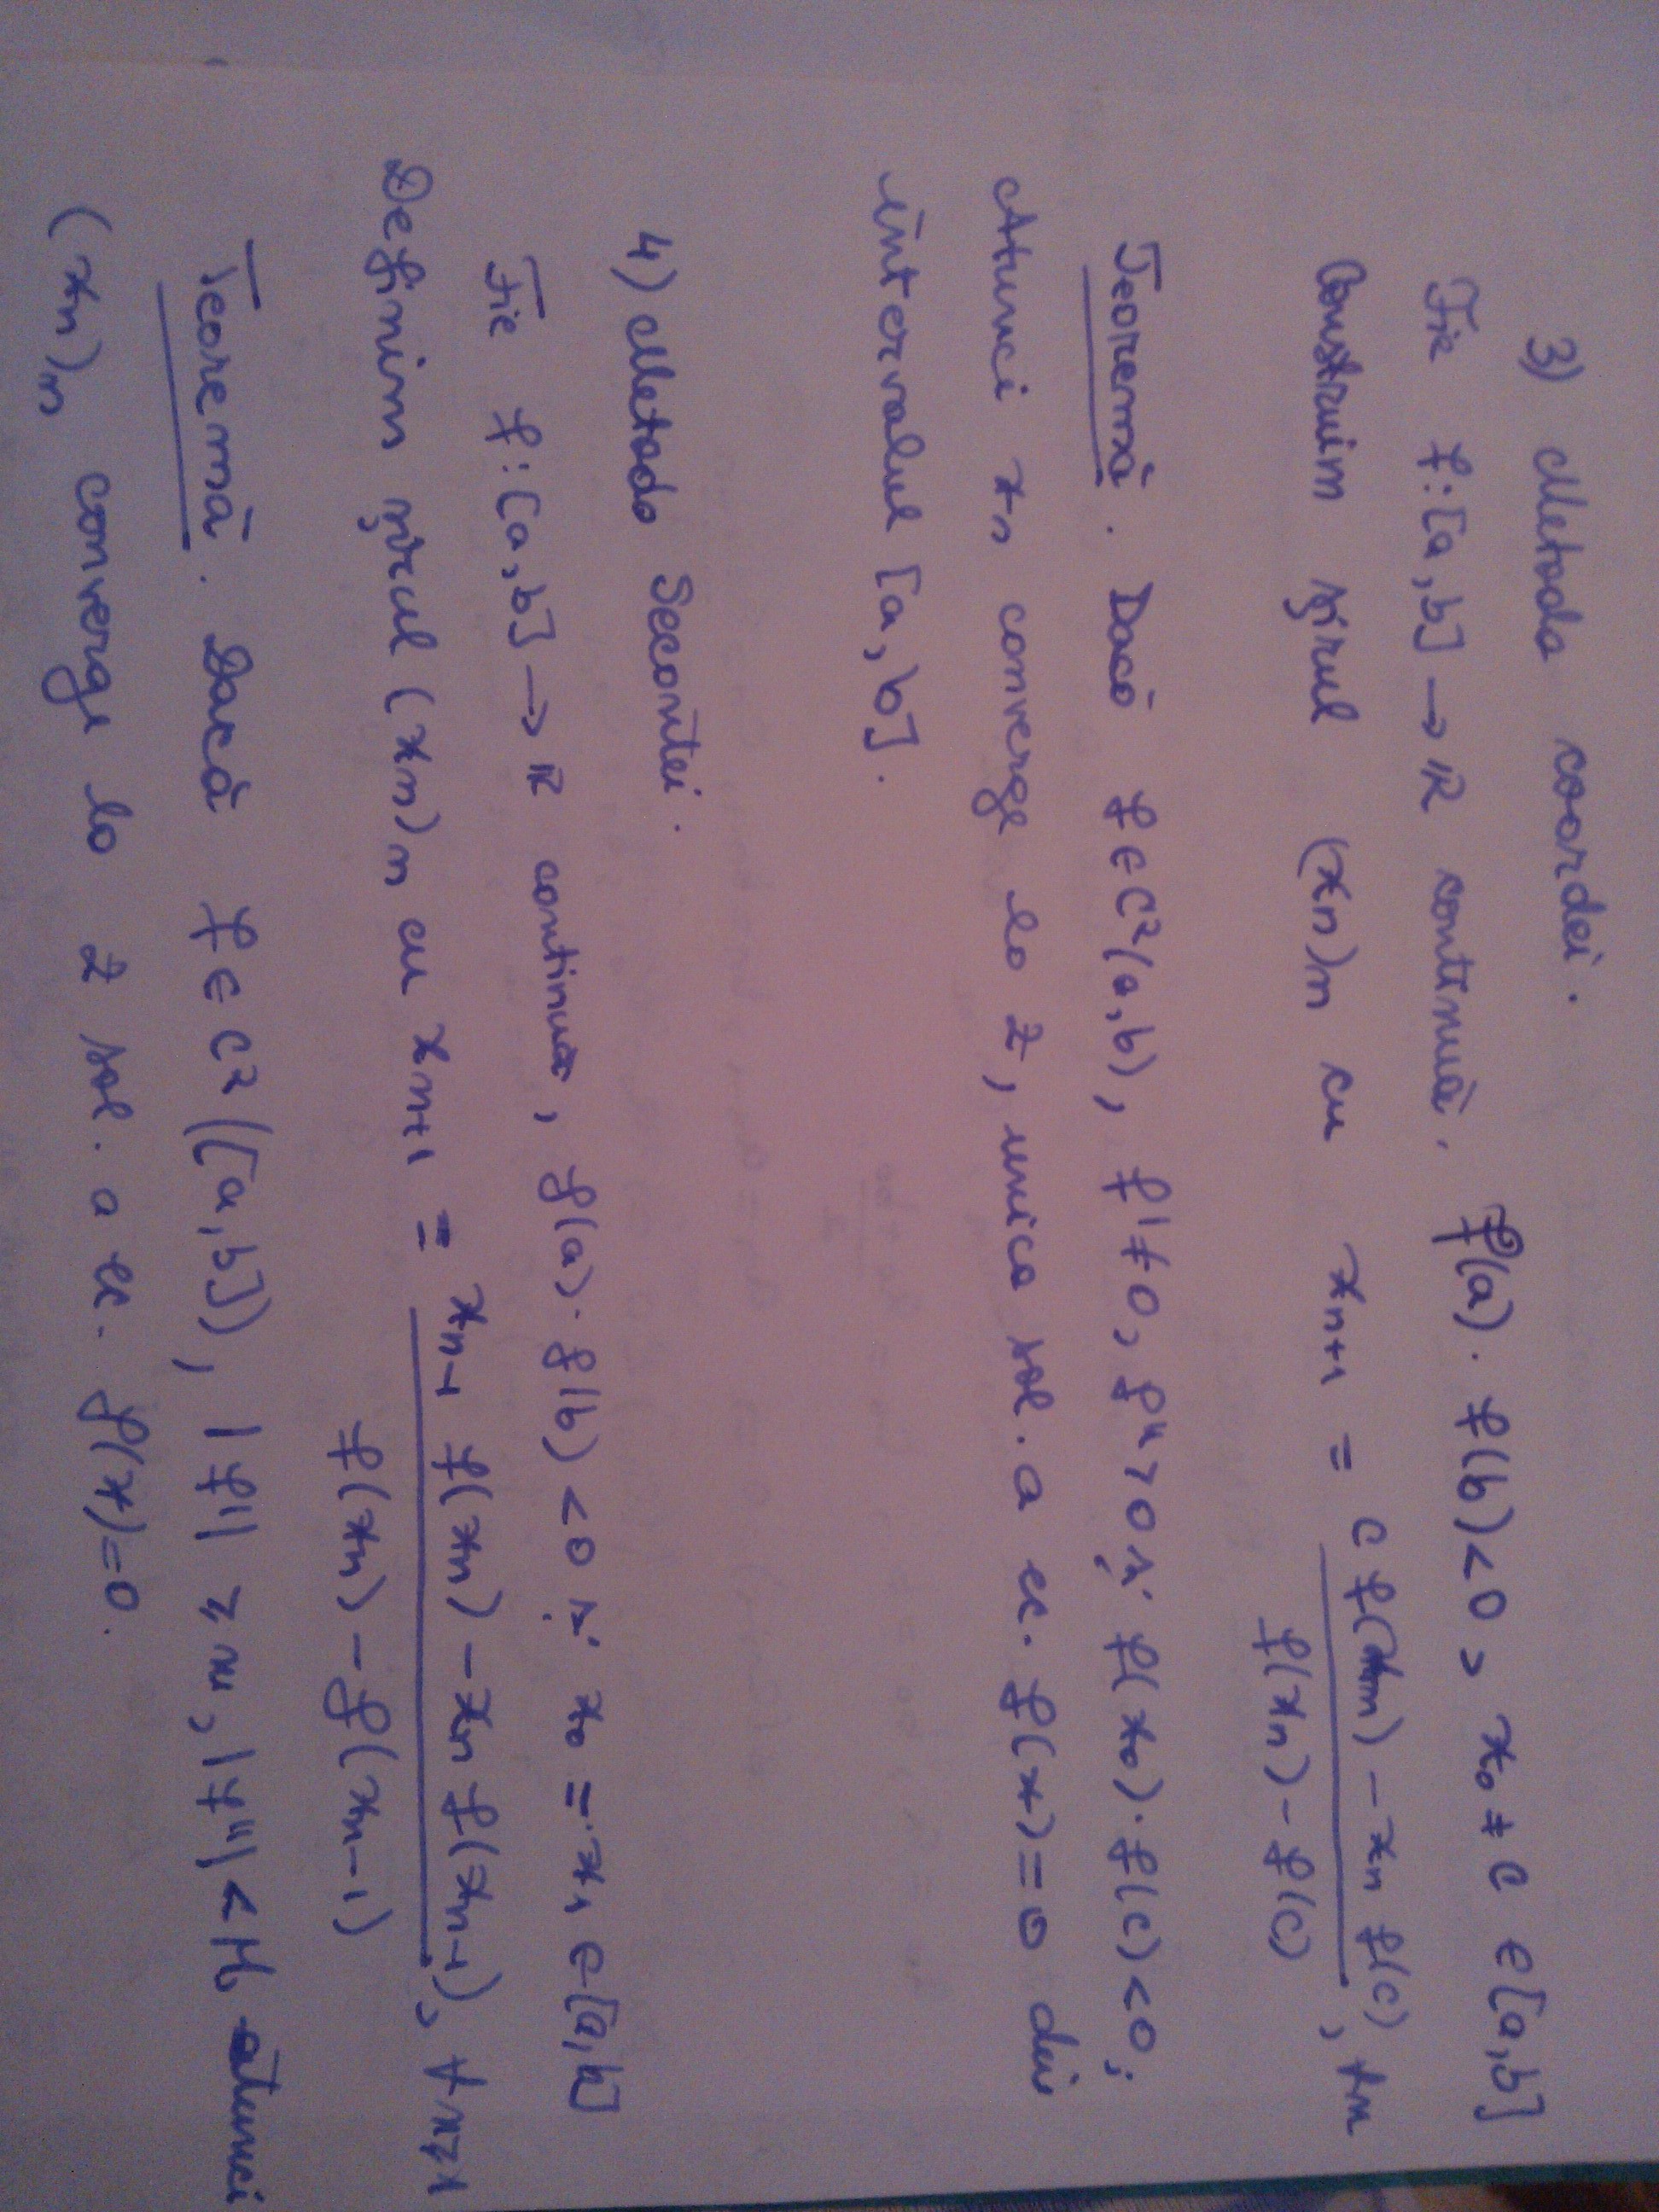 3) Metoda coardei.
Fie f:[a,b] → ℝ continuă, f(a)·f(b)<0, x₀ ≠ c ∈ [a,b]
Construim șirul (xn)n cu x_{n+1} = \frac{c f(xn) - xn f(c)}{f(xn) - f(c)}, ∀n
Teoremă. Dacă f∈C²(a,b), f'≠0, f''>0 și f(x₀)·f(c)<0;
Atunci xn converge la z, unica sol. a ec. f(x)=0 din
intervalul [a,b].
4) Metoda Secantei.
Fie f:[a,b] → ℝ continua, f(a)·f(b)<0 și x₀ = x₁ ∈ [a,b]
Definim șirul (xn)n cu x_{n+1} = \frac{x_{n-1} f(xn) - xn f(x_{n-1})}{f(xn) - f(x_{n-1})}, ∀n≥1
Teoremă. Dacă f∈C²([a,b]), |f'| ≥ m, |f''|<M, atunci
(xn)n converge la z sol. a ec. f(x)=0.